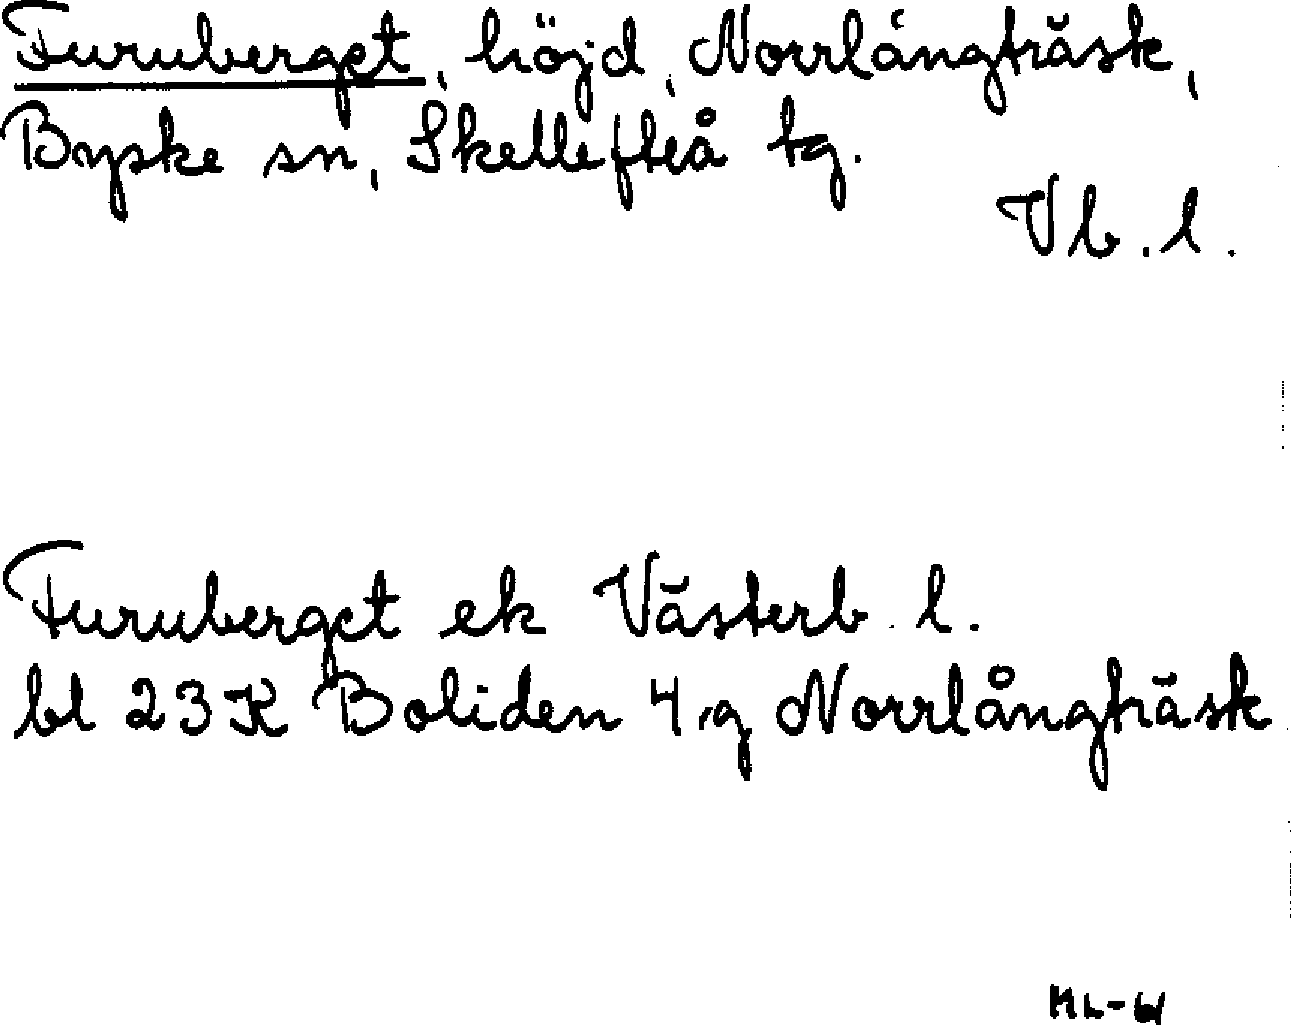 Furuberget, höjd, Norrlångträsk,
Byske sn, Skellefteå tg.
Vb. l.
Furuberget ek Västerb. l.
bl 23K Boliden 4,g Norrlångträsk
ML-61